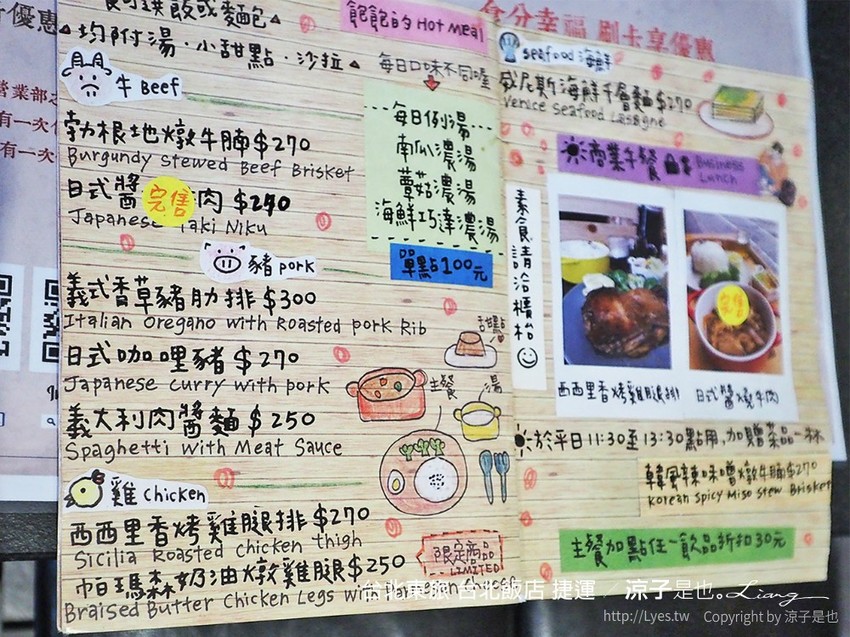 飽飽的 Hot meal
均附湯・小甜點・沙拉
每日口味不同喔
牛 Beef
勃根地燉牛腩 $270
Burgundy Stewed Beef Brisket
日式醬 完售 肉 $240
Japanese Yaki Niku
每日例湯
南瓜濃湯
蕈菇濃湯
海鮮巧達濃湯
單點100元
豬 pork
義式香草豬肋排 $300
Italian Oregano with Roasted Pork Rib
日式咖哩豬 $270
Japanese Curry with pork
義大利肉醬麵 $250
Spaghetti with Meat Sauce
甜點
主餐
湯
雞 Chicken
西西里香烤雞腿排 $270
Sicilia Roasted Chicken Thigh
帕瑪森奶油燉雞腿 $250
Braised Butter Chicken Legs with
限定商品
LIMITED
食分幸福 刷卡享優惠
優惠
營業部
有一次
有一次
seafood 海鮮
威尼斯海鮮千層麵 $270
Venice Seafood Lasagne
商業午餐 Business Lunch
素食請洽櫃枱
完售
西西里香烤雞腿排
日式醬燒牛肉
於平日11:30至13:30點用,加贈茶品一杯
韓風辛辣味噌燉牛腩 $270
Korean Spicy Miso Stew Brisket
主餐加點任一飲品折扣30元
台北東旅 台北飯店 捷運 / 涼子是也。Liang
http://Lyes.tw Copyright by 涼子是也